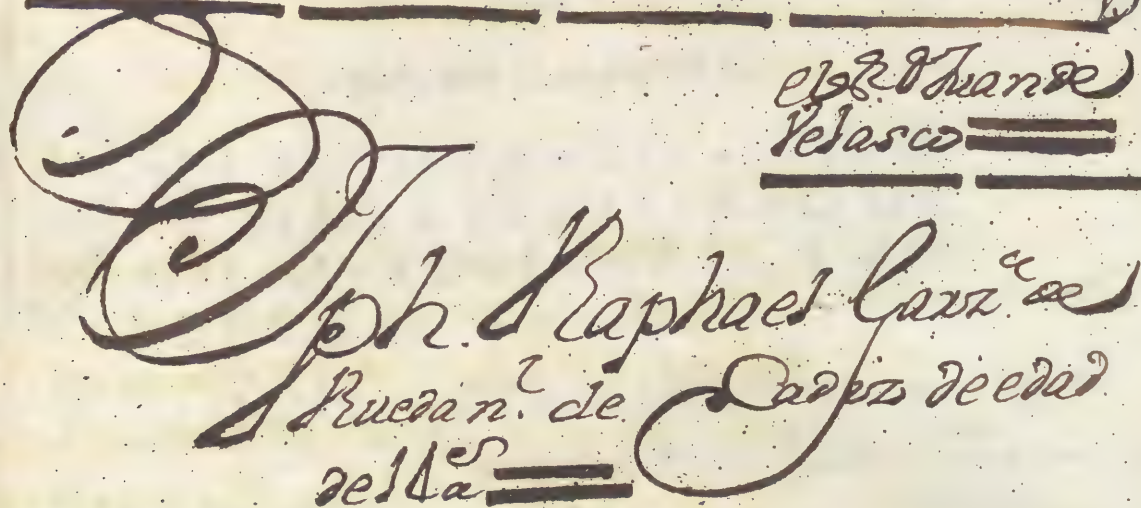 el Sʳ. Dⁿ Juan de
Velasco
Jph. Raphael Garzª. de
Rueda n.ˡ de Cadiz de edad
de 1